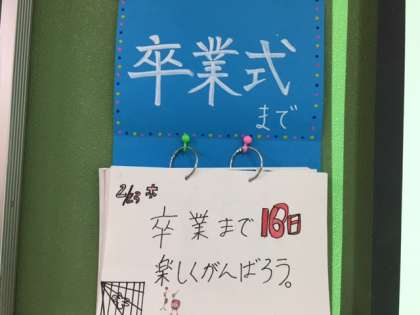 卒業式
まで
2/23 木
卒業まで16日
楽しくがんばろう。